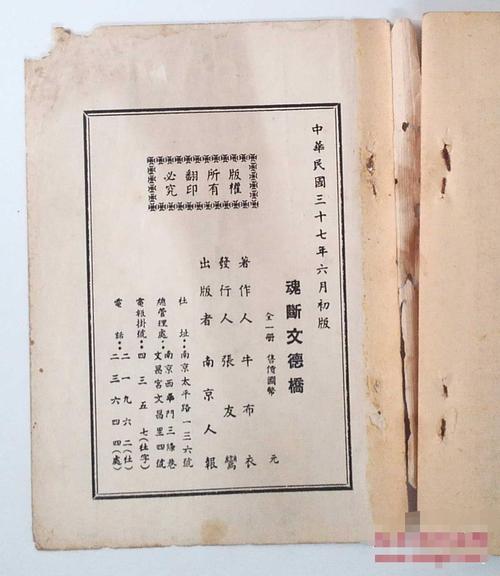 中華民國三十七年六月初版
魂斷文德橋
全一册 售價國幣 元
著作人 牛布衣
發行人 張友鸞
出版者 南京人報
社址：南京太平路一三六號
總管理處：南京西華門三條巷
文昌宮文昌里四號
電報掛號：四三五七（社字）
電話：二一九六二（社）
二三六四四（處）
版權
所有
翻印
必究